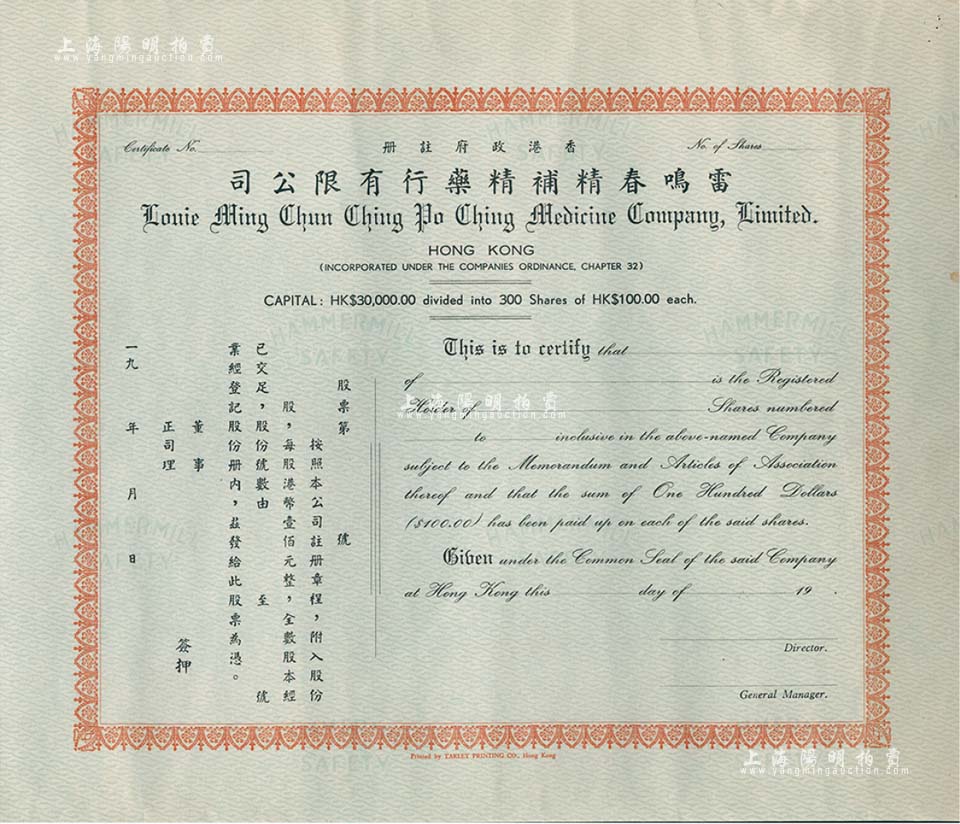 上海陽明拍賣
www.yangmingauction.com
HAMMERMILL
SAFETY
Certificate No.
冊註府政港香
No. of Shares
司公限有行藥精補精春鳴雷
Louie Ming Chun Ching Po Ching Medicine Company, Limited.
HONG KONG
(INCORPORATED UNDER THE COMPANIES ORDINANCE, CHAPTER 32)
CAPITAL: HK$30,000.00 divided into 300 Shares of HK$100.00 each.
HAMMERMILL
SAFETY
HAMMERMILL
SAFETY
股票第 號
按照本公司註册章程，附入股份
股，每股港幣壹佰元整，全數股本經
已交足，股份號數由 至 號
業經登記股份册内，茲發給此股票為憑。
董事
正司理
簽押
一九 年 月 日
This is to certify that
of is the Registered
Holder of Shares numbered
to inclusive in the above-named Company
subject to the Memorandum and Articles of Association
thereof and that the sum of One Hundred Dollars
($100.00) has been paid up on each of the said shares.
Given under the Common Seal of the said Company
at Hong Kong this day of 19 .
Director.
General Manager.
上海陽明拍賣
www.yangmingauction.com
Printed by YARLEY PRINTING CO., Hong Kong
SAFETY
上海陽明拍賣
www.yangmingauction.com